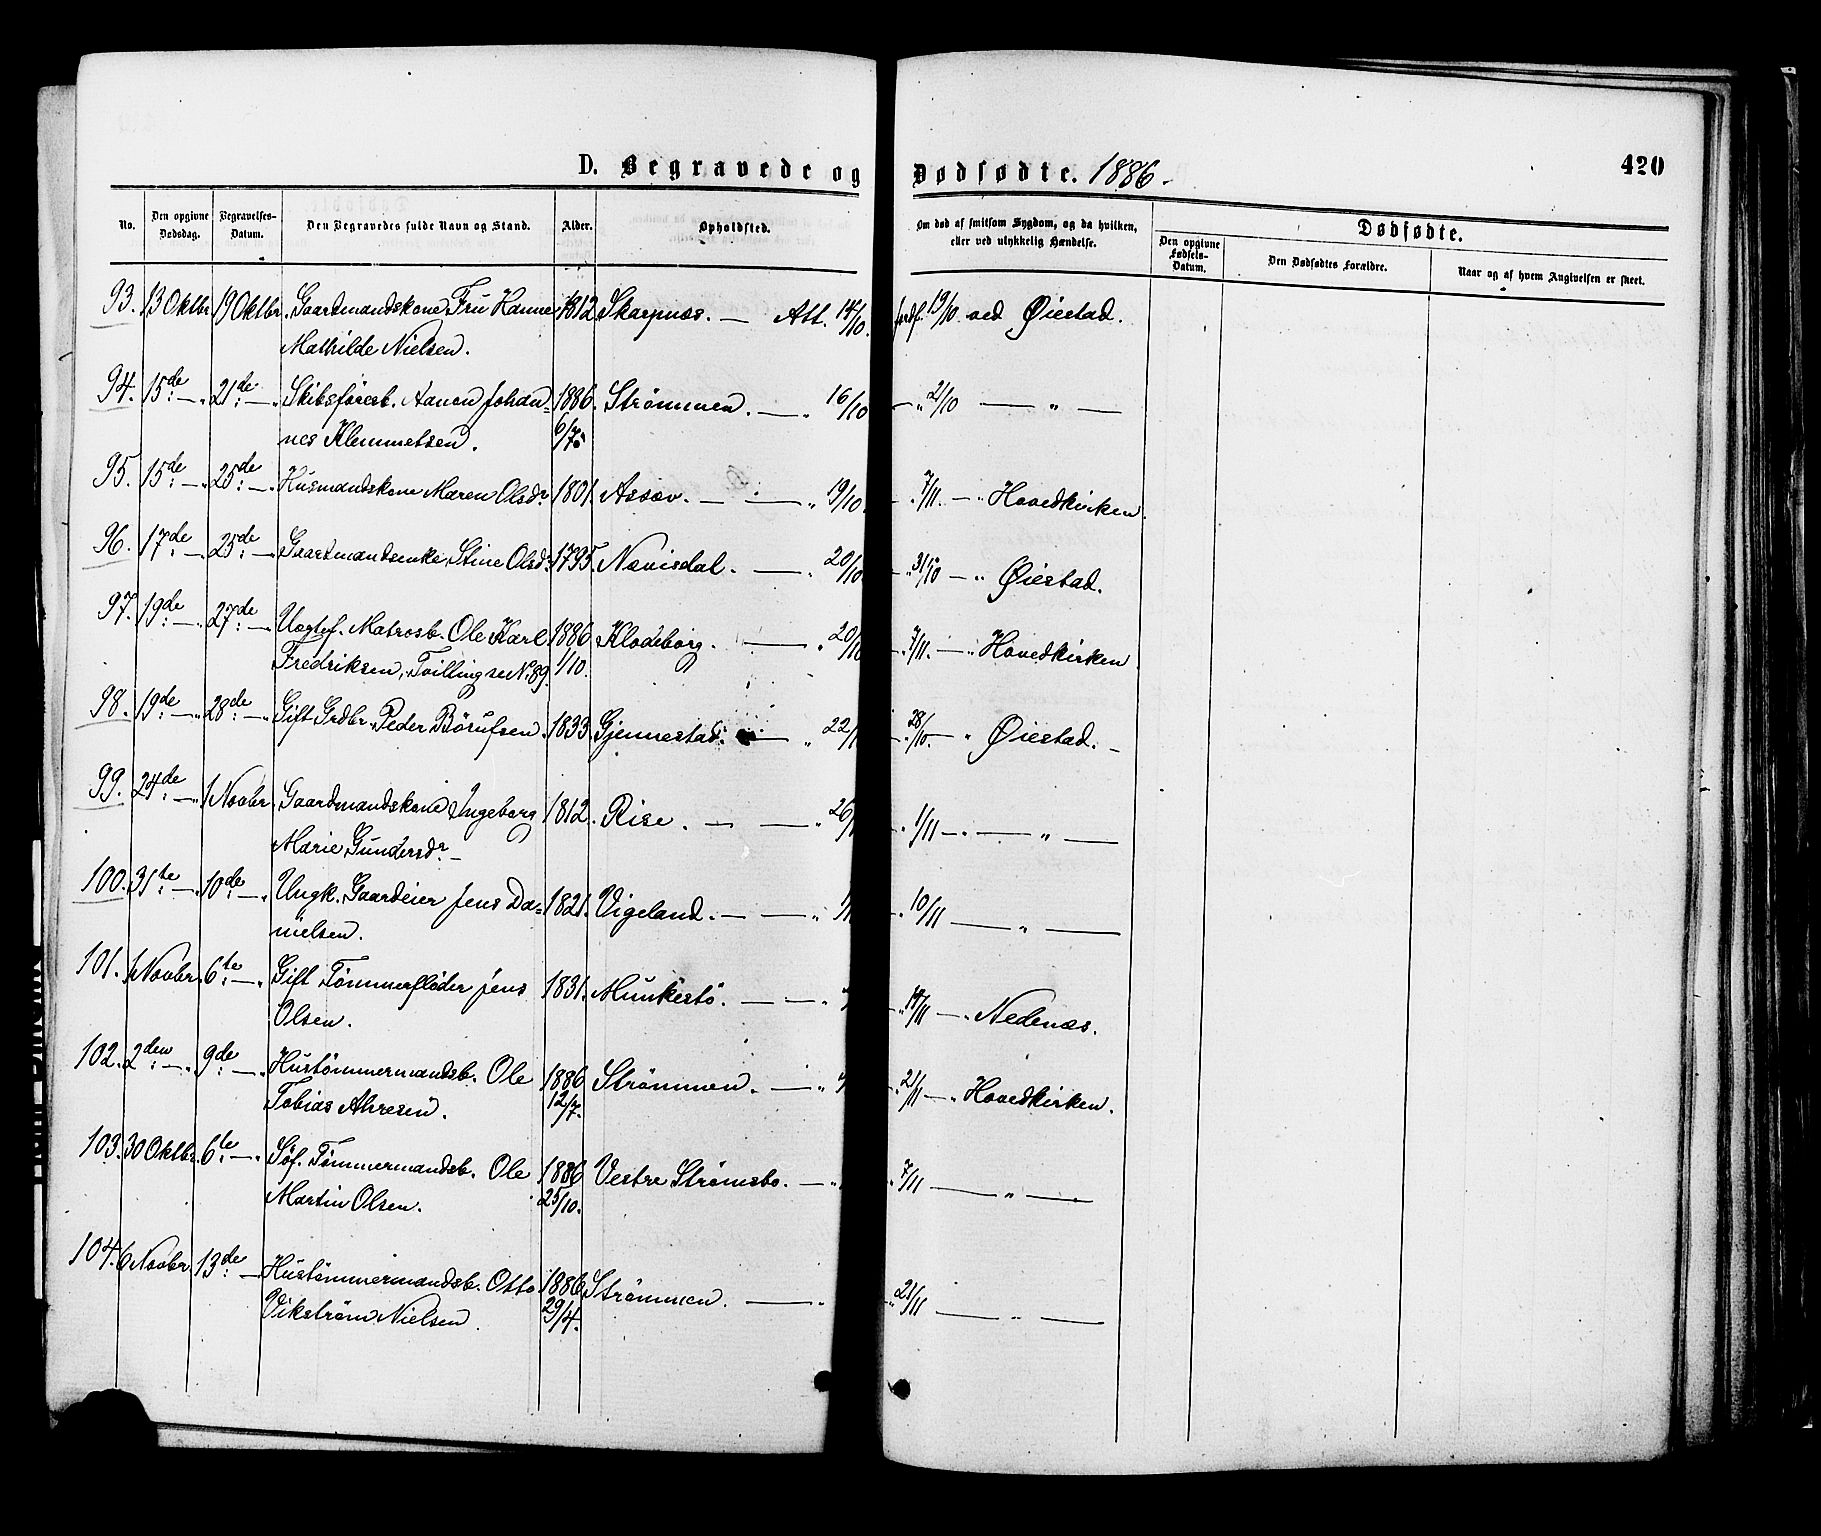 D. Begravede og Dødfødte. 1886. 420
No. Den opgivne Dødsdag. Begravelses-Datum. Den Begravedes fulde Navn og Stand. Alder. Opholdsted. Om død af smitsom Sygdom, og da hvilken, eller ved ulykkelig Hændelse. Dødfødte.
Den opgivne Fødsels-Datum. Den Dødfødtes Forældre. Naar og af hvem Angivelsen er skeet.
93. 13 Oktbr. 19 Oktbr. Gaardmandskone Fru Hanne 1812 Skarpnæs. — Att. 14/10. jordf. 19/10 ved Øiestad.
Mathilde Nielsen.
94. 15de —. 21de —. Skibsførerb. Aanon Johan- 1886. Strømmen. — " 16/10 — " 2/10 — " —
nes Klemmetsen. 6/7.
95. 15de —. 25de —. Husmandskone Maren Olsdr. 1801. Assæv. — — " 19/10. " 7/11. — " Hovedkirken.
96. 17de —. 25de —. Gaardmandsenke Stine Olsdr. 1795. Nævisdal. — " 20/10 — " 31/10 — " Øiestad.
97. 19de —. 27de —. Uægtef. Matrosb. Ole Karl 1886 Klodeborg. — " 20/10 — " 7/11. — " Hovedkirken
Fredriksen, Tvilling se No. 89. 1/10.
98. 19de —. 28de —. Gift Grdbr. Peder Børufsen. 1833. Gjennestad. — " 22/1 — 28/10. — " Øiestad. —
99. 24de —. 1 Novbr. Gaardmandskone Ingeborg 1812. Rise. — — " 26/1 " 1/11 —. — " —
Marie Gundersdr. —
100. 31te —. 10de —. Ungk. Gaardeier Jens Da- 1821. Vigeland. — — " — " 10/11 — " —
nielsen.
101. 1 Novbr. 6te —. Gift Tømmerfløder Jens 1831. Munkestø. — — " — " 14/11 — " Nedenæs.
Olsen.
102. 2den —. 9de —. Hustømmermandsb. Ole 1886 Strømmen. — " — " 21/11 — " Hovedkirken.
Tobias Ahresen. 12/7.
103. 30 Oktbr. 6te —. Søf. Tømmermandsb. Ole 1886 Vestre Strømsbo. — " — " 7/11 — " —
Martin Olsen. 25/10.
104. 6 Novbr. 13de —. Hustømmermandsb. Otto 1886 Strømmen. — " — " 21/11 — " —
Vikstrøm Nielsen. 29/4.